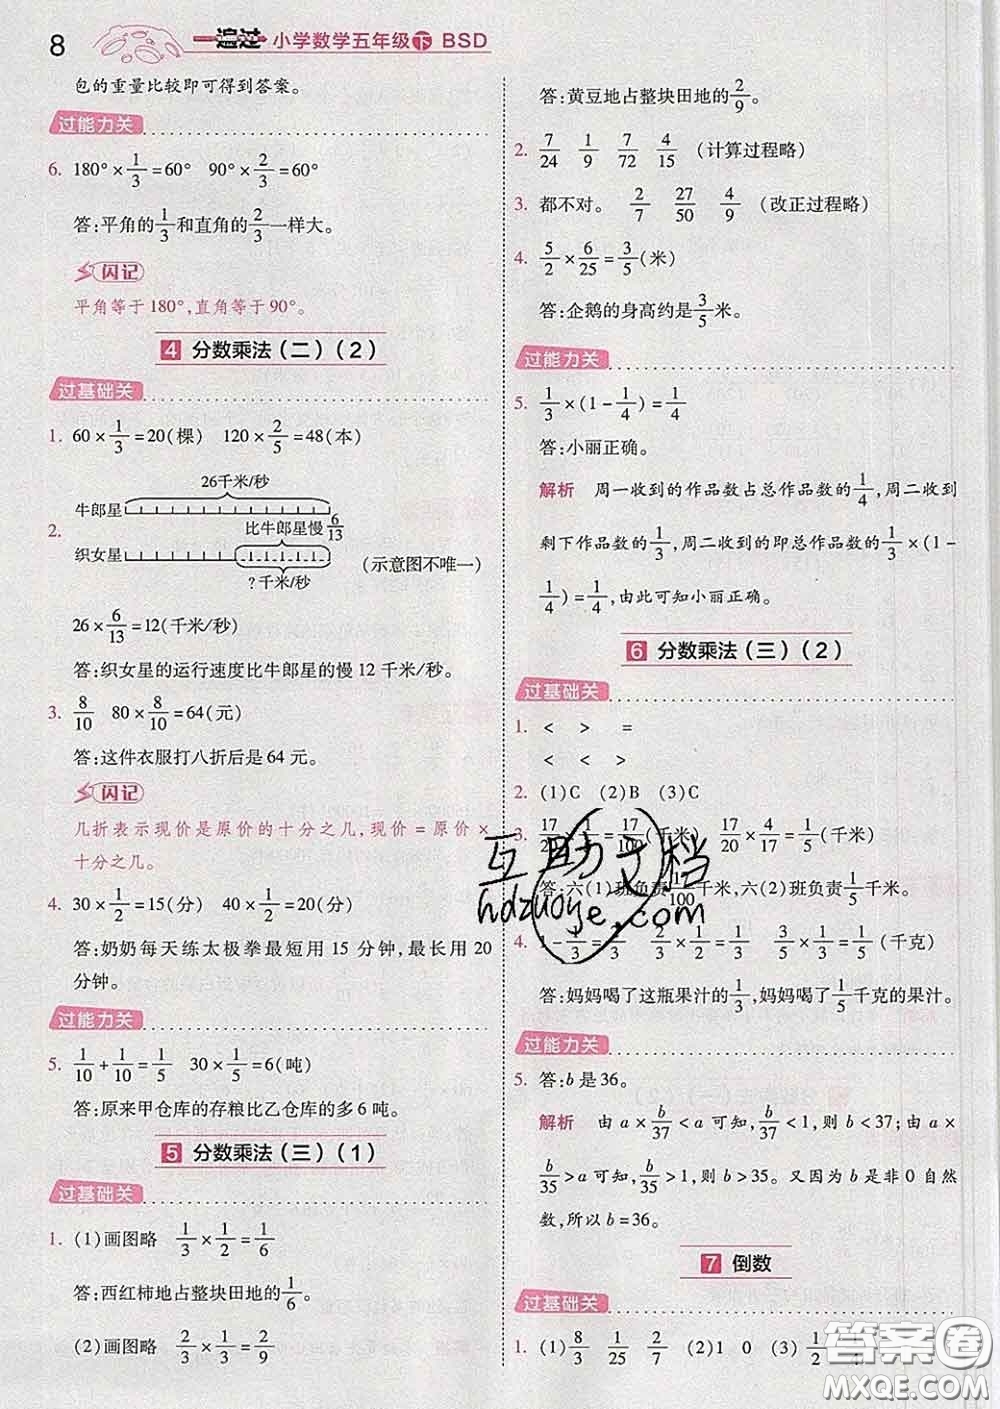 8
一遍过 小学数学五年级 下 BSD
包的重量比较即可得到答案。
过能力关
6. 180°×1/3=60° 90°×2/3=60°
答:平角的1/3和直角的2/3一样大。
闪记
平角等于180°,直角等于90°。
4 分数乘法(二)(2)
过基础关
1. 60×1/3=20(棵) 120×2/5=48(本)
26千米/秒
牛郎星
2. 比牛郎星慢6/13
织女星
?千米/秒 (示意图不唯一)
26×6/13=12(千米/秒)
答:织女星的运行速度比牛郎星的慢12千米/秒。
3. 8/10 80×8/10=64(元)
答:这件衣服打八折后是64元。
闪记
几折表示现价是原价的十分之几,现价=原价×
十分之几。
4. 30×1/2=15(分) 40×1/2=20(分)
答:奶奶每天练太极拳最短用15分钟,最长用20
分钟。
过能力关
5. 1/10+1/10=1/5 30×1/5=6(吨)
答:原来甲仓库的存粮比乙仓库的多6吨。
5 分数乘法(三)(1)
过基础关
1. (1)画图略 1/3×1/2=1/6
答:西红柿地占整块田地的1/6。
(2)画图略 2/3×1/3=2/9
答:黄豆地占整块田地的2/9。
2. 7/24 1/9 7/72 4/15 (计算过程略)
3. 都不对。 2/7 27/50 4/9 (改正过程略)
4. 5/2×6/25=3/5(米)
答:企鹅的身高约是3/5米。
过能力关
5. 1/3×(1-1/4)=1/4
答:小丽正确。
解析 周一收到的作品数占总作品数的1/4,周二收到
剩下作品数的1/3,周二收到的即总作品数的1/3×(1-
1/4)=1/4,由此可知小丽正确。
6 分数乘法(三)(2)
过基础关
1. < > =
< < >
2. (1)C (2)B (3)C
3. 17/20 1/5=17/100(千米) 17/20×4/17=1/5(千米)
答:六(1)班负责/100千米,六(2)班负责1/5千米。
4. 1-1/3=2/3 2/3×1/2=1/3 3/5×1/3=1/5(千克)
答:妈妈喝了这瓶果汁的1/3,妈妈喝了1/5千克的果汁。
过能力关
5. 答:b是36。
解析 由a×b/37<a可知,b/37<1,则b<37;由a×
b/35>a可知,b/35>1,则b>35。又因为b是非0自然
数,所以b=36。
7 倒数
过基础关
1. (1)8/3 1/25 2/7 (2)1 0 (3)1/2
互助文档
hdzuoye.com
答案圈
MXQE.COM